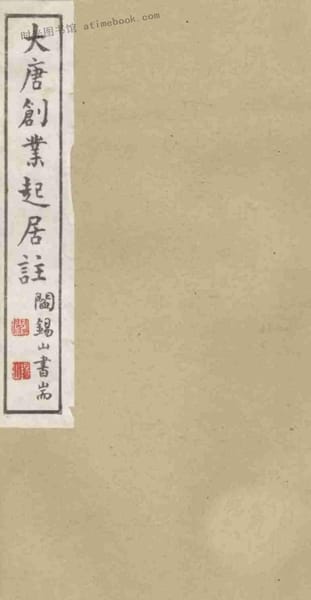 时光图书馆 atimebook.com
大唐創業起居註
閻錫山書耑